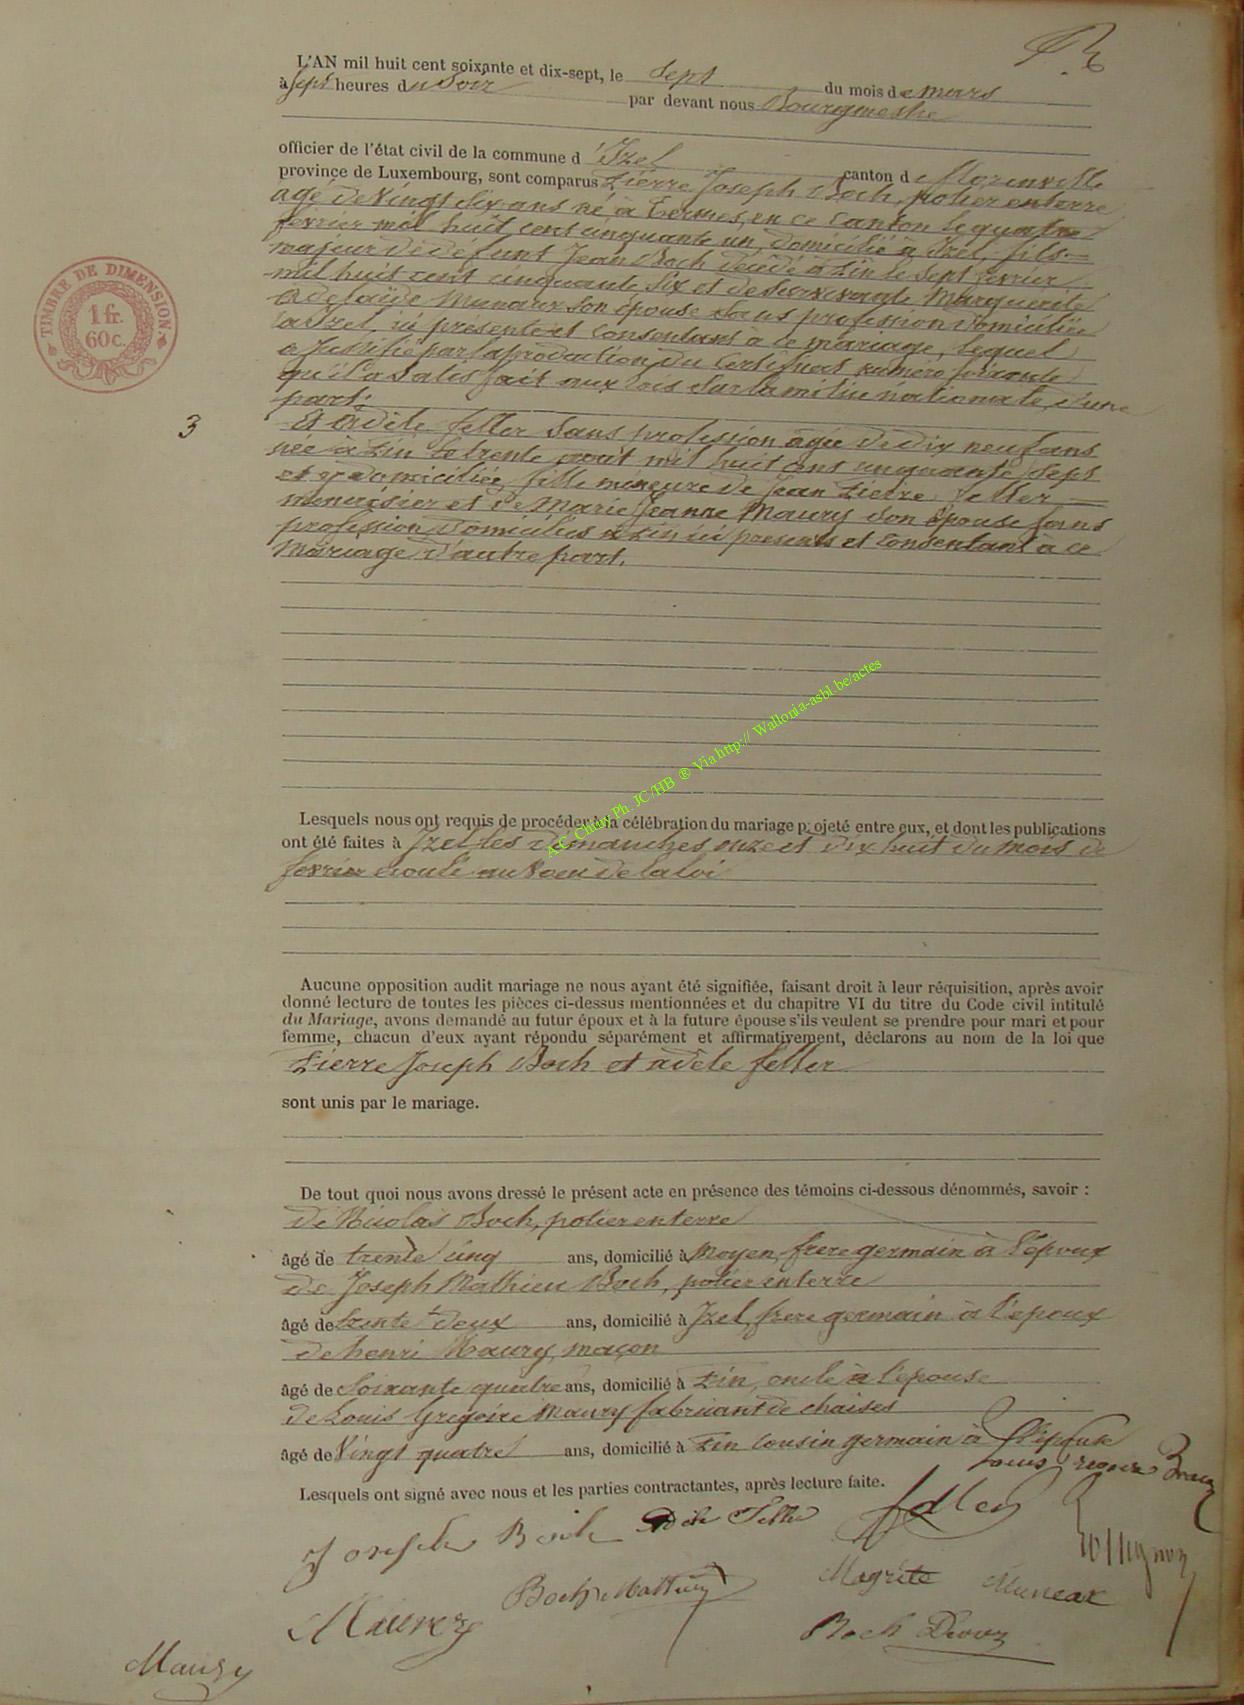 L'AN mil huit cent soixante et dix-sept, le sept du mois de mars
à sept heures du soir par devant nous Bourgmestre
officier de l'état civil de la commune d'Izel canton de Florenville
province de Luxembourg, sont comparus Pierre Joseph Boch, potier en terre
agé de vingt six ans né à Termes, en ce canton le quatre
fevrier mil huit cent cinquante un, domicilié à Izel, fils
majeur de défunt Jean Boch décédé à Pin le sept fevrier
mil huit cent cinquante six et de survivante Marguerite
Adelaïde Munaux son épouse sans profession domiciliée
à Izel, ici présente et consentant à ce mariage, lequel
a justifié par la production du certificat numéro soixante
qu'il a satisfait aux lois sur la milice nationale, d'une
part;
3
Et Adèle feller sans profession agée de dix neuf ans
née à Pin le trente août mil huit cent cinquante sept
et y domiciliée, fille mineure de Jean Pierre feller
menuisier et de Marie Jeanne Maury son épouse sans
profession domiciliés à Pin ici présents et consentant à ce
mariage d'autre part.
TIMBRE DE DIMENSION
1 fr.
60 c.
A.C. Chiny Ph. JC/HB ® Via http:// Wallonia-asbl.be/actes
Lesquels nous ont requis de procéder à la célébration du mariage projeté entre eux, et dont les publications
ont été faites à Izel les dimanches onze et dix huit du mois de
fevrier écoulé au voeu de la loi
Aucune opposition audit mariage ne nous ayant été signifiée, faisant droit à leur réquisition, après avoir
donné lecture de toutes les pièces ci-dessus mentionnées et du chapitre VI du titre du Code civil intitulé
du Mariage, avons demandé au futur époux et à la future épouse s'ils veulent se prendre pour mari et pour
femme, chacun d'eux ayant répondu séparément et affirmativement, déclarons au nom de la loi que
Pierre Joseph Boch et adèle feller
sont unis par le mariage.
De tout quoi nous avons dressé le présent acte en présence des témoins ci-dessous dénommés, savoir :
de Nicolas Boch, potier en terre
âgé de trente cinq ans, domicilié à Moyen, frere germain à l'époux
de Joseph Mathieu Boch, potier en terre
âgé de trente deux ans, domicilié à Izel, frere germain à l'époux
de henri Maury, maçon
âgé de soixante quatre ans, domicilié à Pin, oncle à l'épouse
de Louis Gregoire Maury fabricant de chaises
âgé de vingt quatre ans, domicilié à Pin cousin germain à l'épouse
Lesquels ont signé avec nous et les parties contractantes, après lecture faite.
Louis Gregoire Maury
Joseph Boch Adele Feller feller
Maury Boch Mathieu Magrite Muneax
Boch
Maury